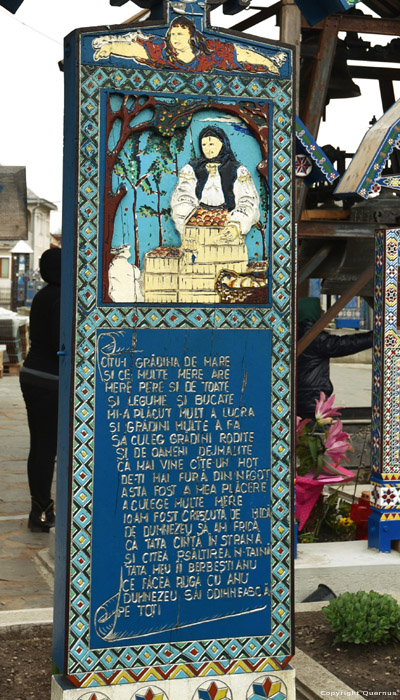 CITUI GRĂDINA DE MARE
ȘI CE MULTE MERE ARE
MERE PERE ȘI DE TOATE
ȘI LEGUME ȘI BUCATE
MI-A PLĂCUT MULT A LUCRA
ȘI GRĂDINI MULTE A FA
SĂ CULEG GRĂDINI RODITE
ȘI DE OAMENI
CĂ MAI VINE CÎTE UN HOȚ
DE-ȚI MAI FURĂ DIN
ASTA FOST A MEA PLĂCERE
A CULEGE MULTE MERE
IO AM FOST CRESCUTĂ DE MICĂ
DE DUMNEZEU SĂ AM FRICĂ
CĂ TATA CÎNTĂ ÎN STRANĂ
ȘI CITEA PSĂLTIREA N TAINĂ
TATA MEU II BERBEȘTI ANU
CE FĂCEA RUGĂ CU ANU
DUMNEZEU SĂI ODIHNEASCĂ
PE TOȚI
Copyright Quernus.com